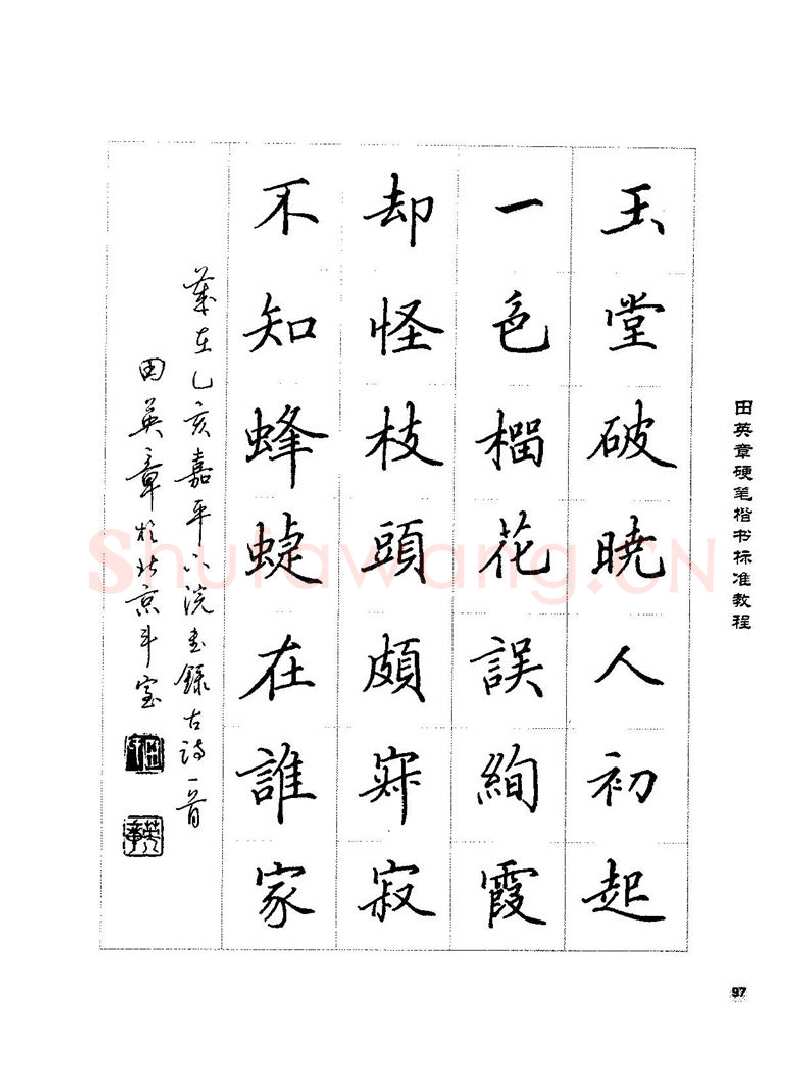 玉堂破曉人初起
一色榴花誤絢霞
却怪枝頭頗寂
不知蜂蜨在誰家
歲在乙亥嘉平下浣書錄古詩一首
田英章於北京斗室
田英章硬笔楷书标准教程
97
Shufawang.CN